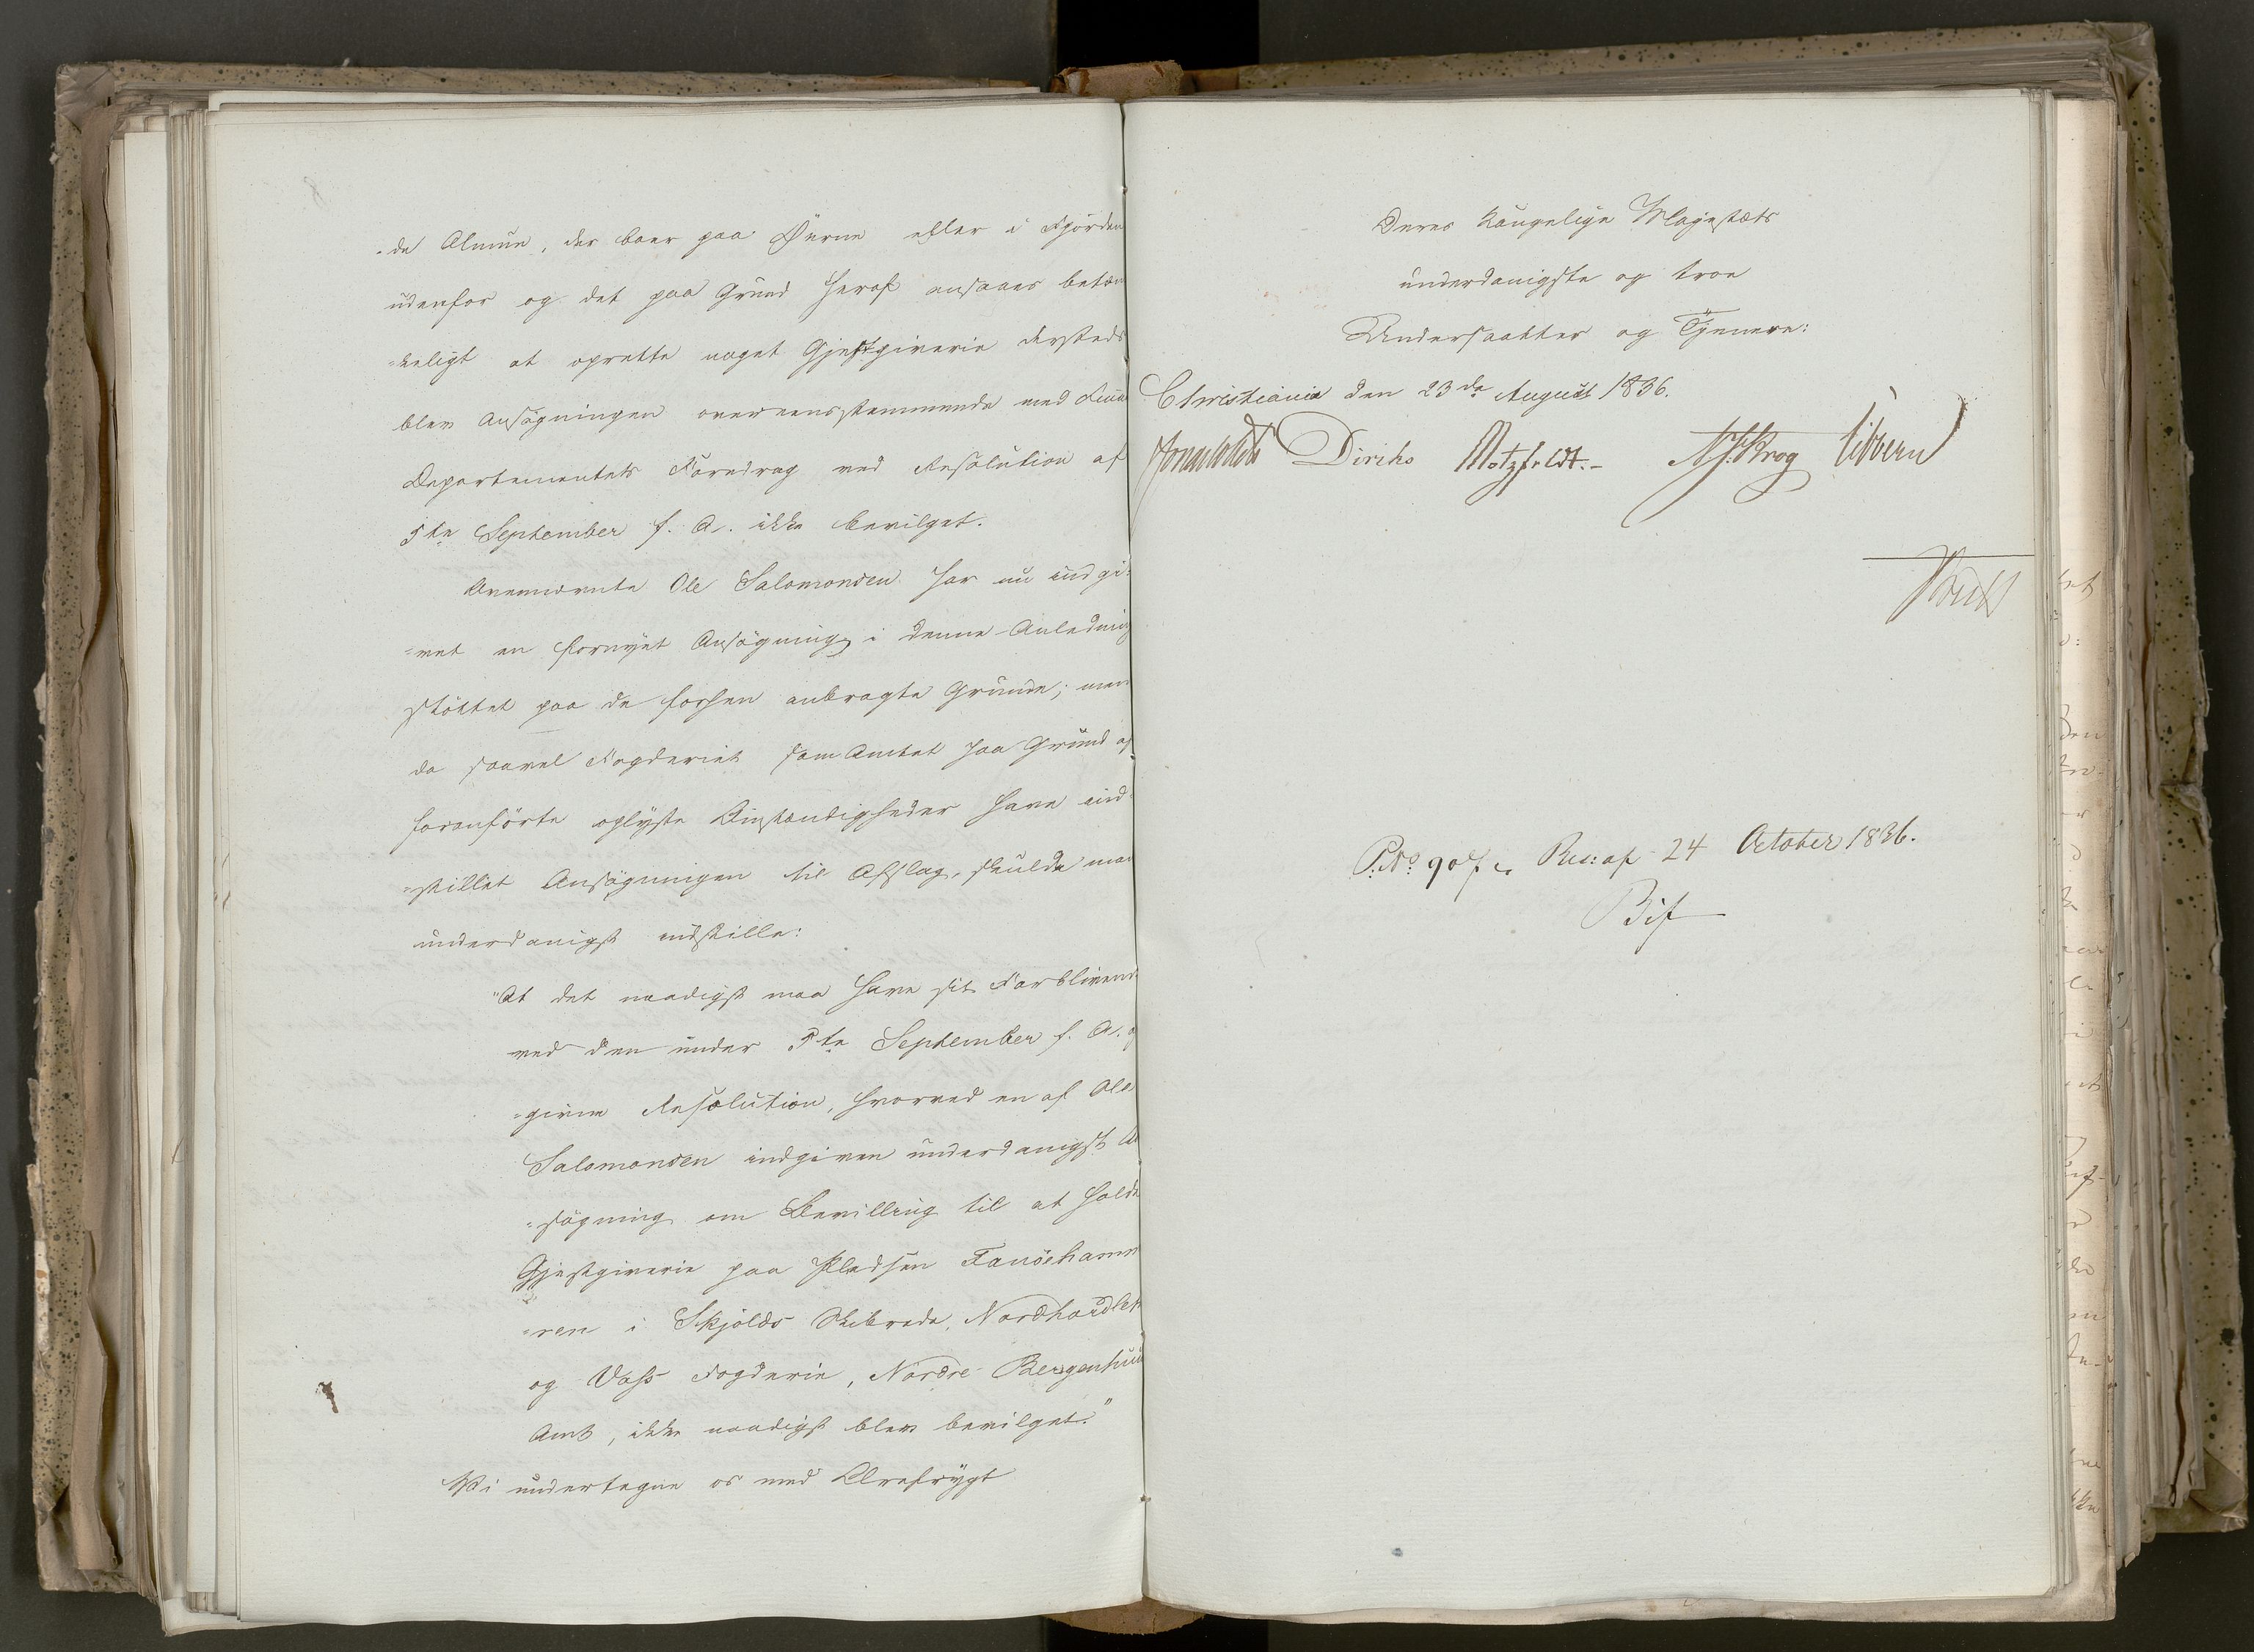 -de Almue, der boer paa Öerne eller i Fjorden
udenfor og det paa Grund heraf ansaaes betæn
-keligt at oprette noget Gjestgiverie dersteds
blev Ansögningen overeensstemmende med
Departementets Foredrag ved Resolution af
5te September f. A. ikke bevilget.
Ovennævnte Ole Salomonsen har nu indgi-
-vet en fornyet Ansögning i denne Anledning
stöttet paa de forhen anbragte Grunde; men
da saavel Fogderiet som Amtet paa Grund af
foranförte oplyste Omstændigheder have ind-
-stillet Ansögningen til Afslag, skulde man
underdanigst indstille:
"At det naadigst maa have sit Forblivende
ved den under 5te September f. A.
-givne Resolution, hvorved en af Ole
Salomonsen indgiven underdanigst An
-sögning om Bevilling til at holde
Gjestgiverie paa Pladsen Fanöehamm
-ren i Skjolds Skibrede, Nordhordlehn
og Voss Fogderie, Nordre Bergenhuus
Amt, ikke naadigst blev bevilget."
Vi undertegne os med Ærefrygt
Deres Kongelige Majestæts
underdanigste og troe
Undersaatter og Tjenere:
Christiania den 23de August 1836.
Diriks Motzfeldt.- Krog Sibbern
P. No 907 Res: af 24 October 1836.